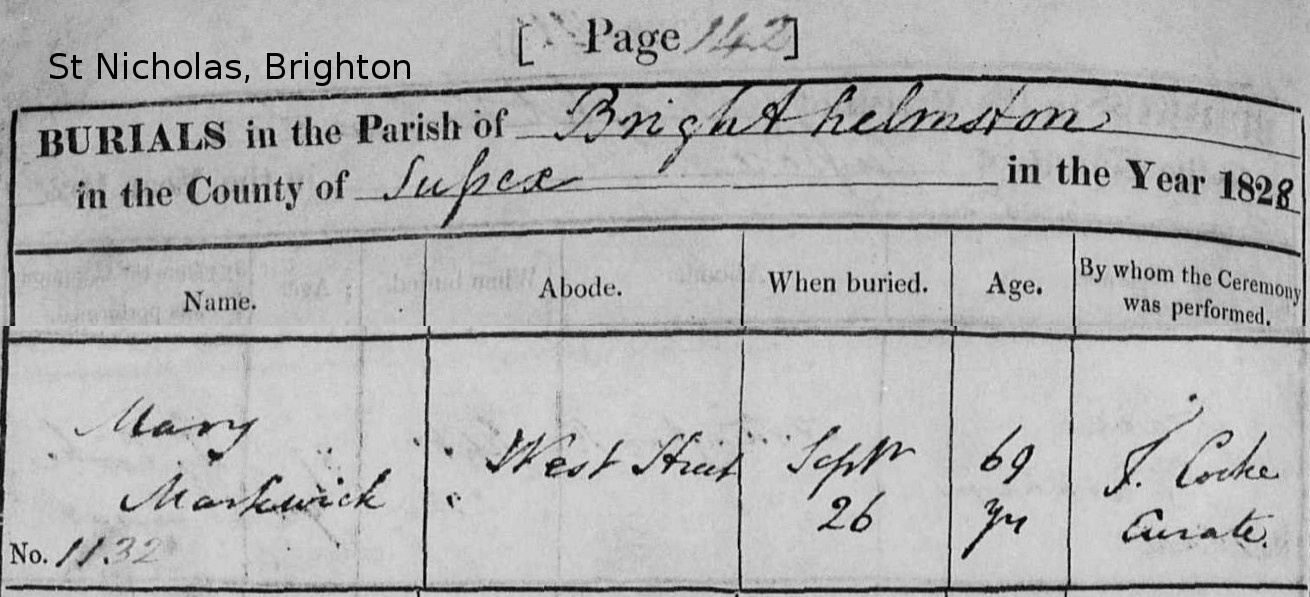 [ Page 142]
St Nicholas, Brighton
BURIALS in the Parish of Brighthelmston
in the County of Sussex in the Year 1828
Name. Abode. When buried. Age. By whom the Ceremony
was performed.
Mary
Markwick
West Street
Septr
26
69
yrs
J. Cocke
Curate.
No. 1132